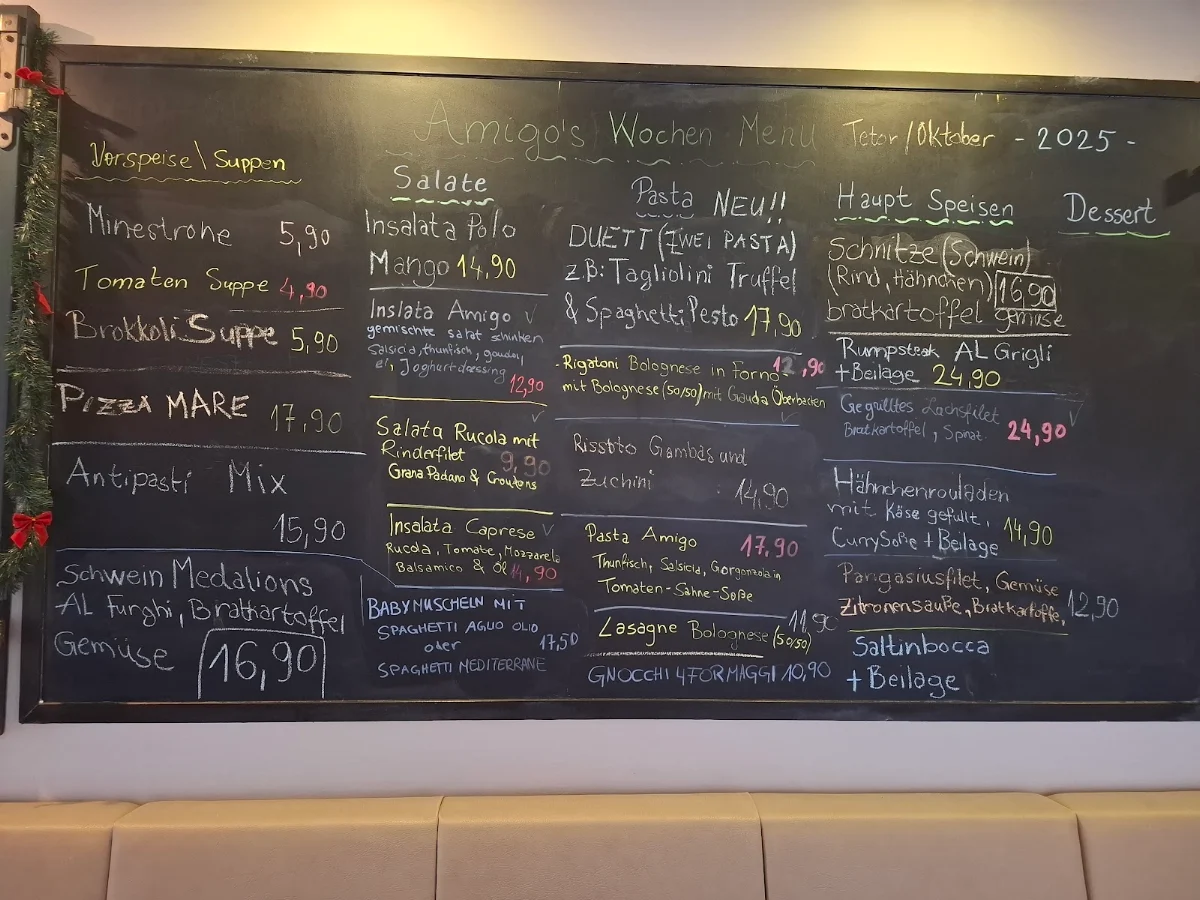 Amigo's Wochen Menü Tetor/Oktober - 2025 -
Vorspeise\Suppen
Minestrone 5,90
Tomaten Suppe 4,90
Brokkoli Suppe 5,90
Pizza MARE 17,90
Antipasti Mix
15,90
Schwein Medalions
AL Funghi, Bratkartoffel
Gemüse 16,90
Salate
Insalata Polo
Mango 14,90
Inslata Amigo
gemischte salat schinken
Salsicia, thunfisch, gouda,
ei, Joghurtdressing
12,90
Salata Rucola mit
Rinderfilet 9,90
Grana Padano & Croutons
Insalata Caprese
Rucola, Tomate, Mozzarela
Balsamico & Öl 14,90
BABYMUSCHELN MIT
SPAGHETTI AGLIO OLIO
oder 17,50
SPAGHETTI MEDITERRANE
Pasta NEU!!
DUETT (ZWEI PASTA)
z.B: Tagliolini Truffel
& Spaghetti Pesto 17,90
- Rigatoni Bolognese in Forno 12,90
mit Bolognese (50/50) mit Gauda Überbacken
Rissoto Gambas und
Zuchini 14,90
Pasta Amigo 17,90
Thunfisch, Salsicia, Gorgonzola in
Tomaten-Sahne-Soße
11,90
Lasagne Bolognese (50/50)
GNOCCHI 4FORMAGGI 10,90
Haupt Speisen
Schnitzel (Schwein)
(Rind, Hähnchen) 16,90
bratkartoffel gemüse
Rumpsteak AL Grigli
+Beilage 24,90
Gegrilltes Lachsfilet
Bratkartoffel, Spinat. 24,90
Hähnchenrouladen
mit Käse gefüllt, 14,90
CurrySoße + Beilage
Pangasiusfilet, Gemüse
Zitronensauße, Bratkartoffe, 12,90
Saltinbocca
+ Beilage
Dessert